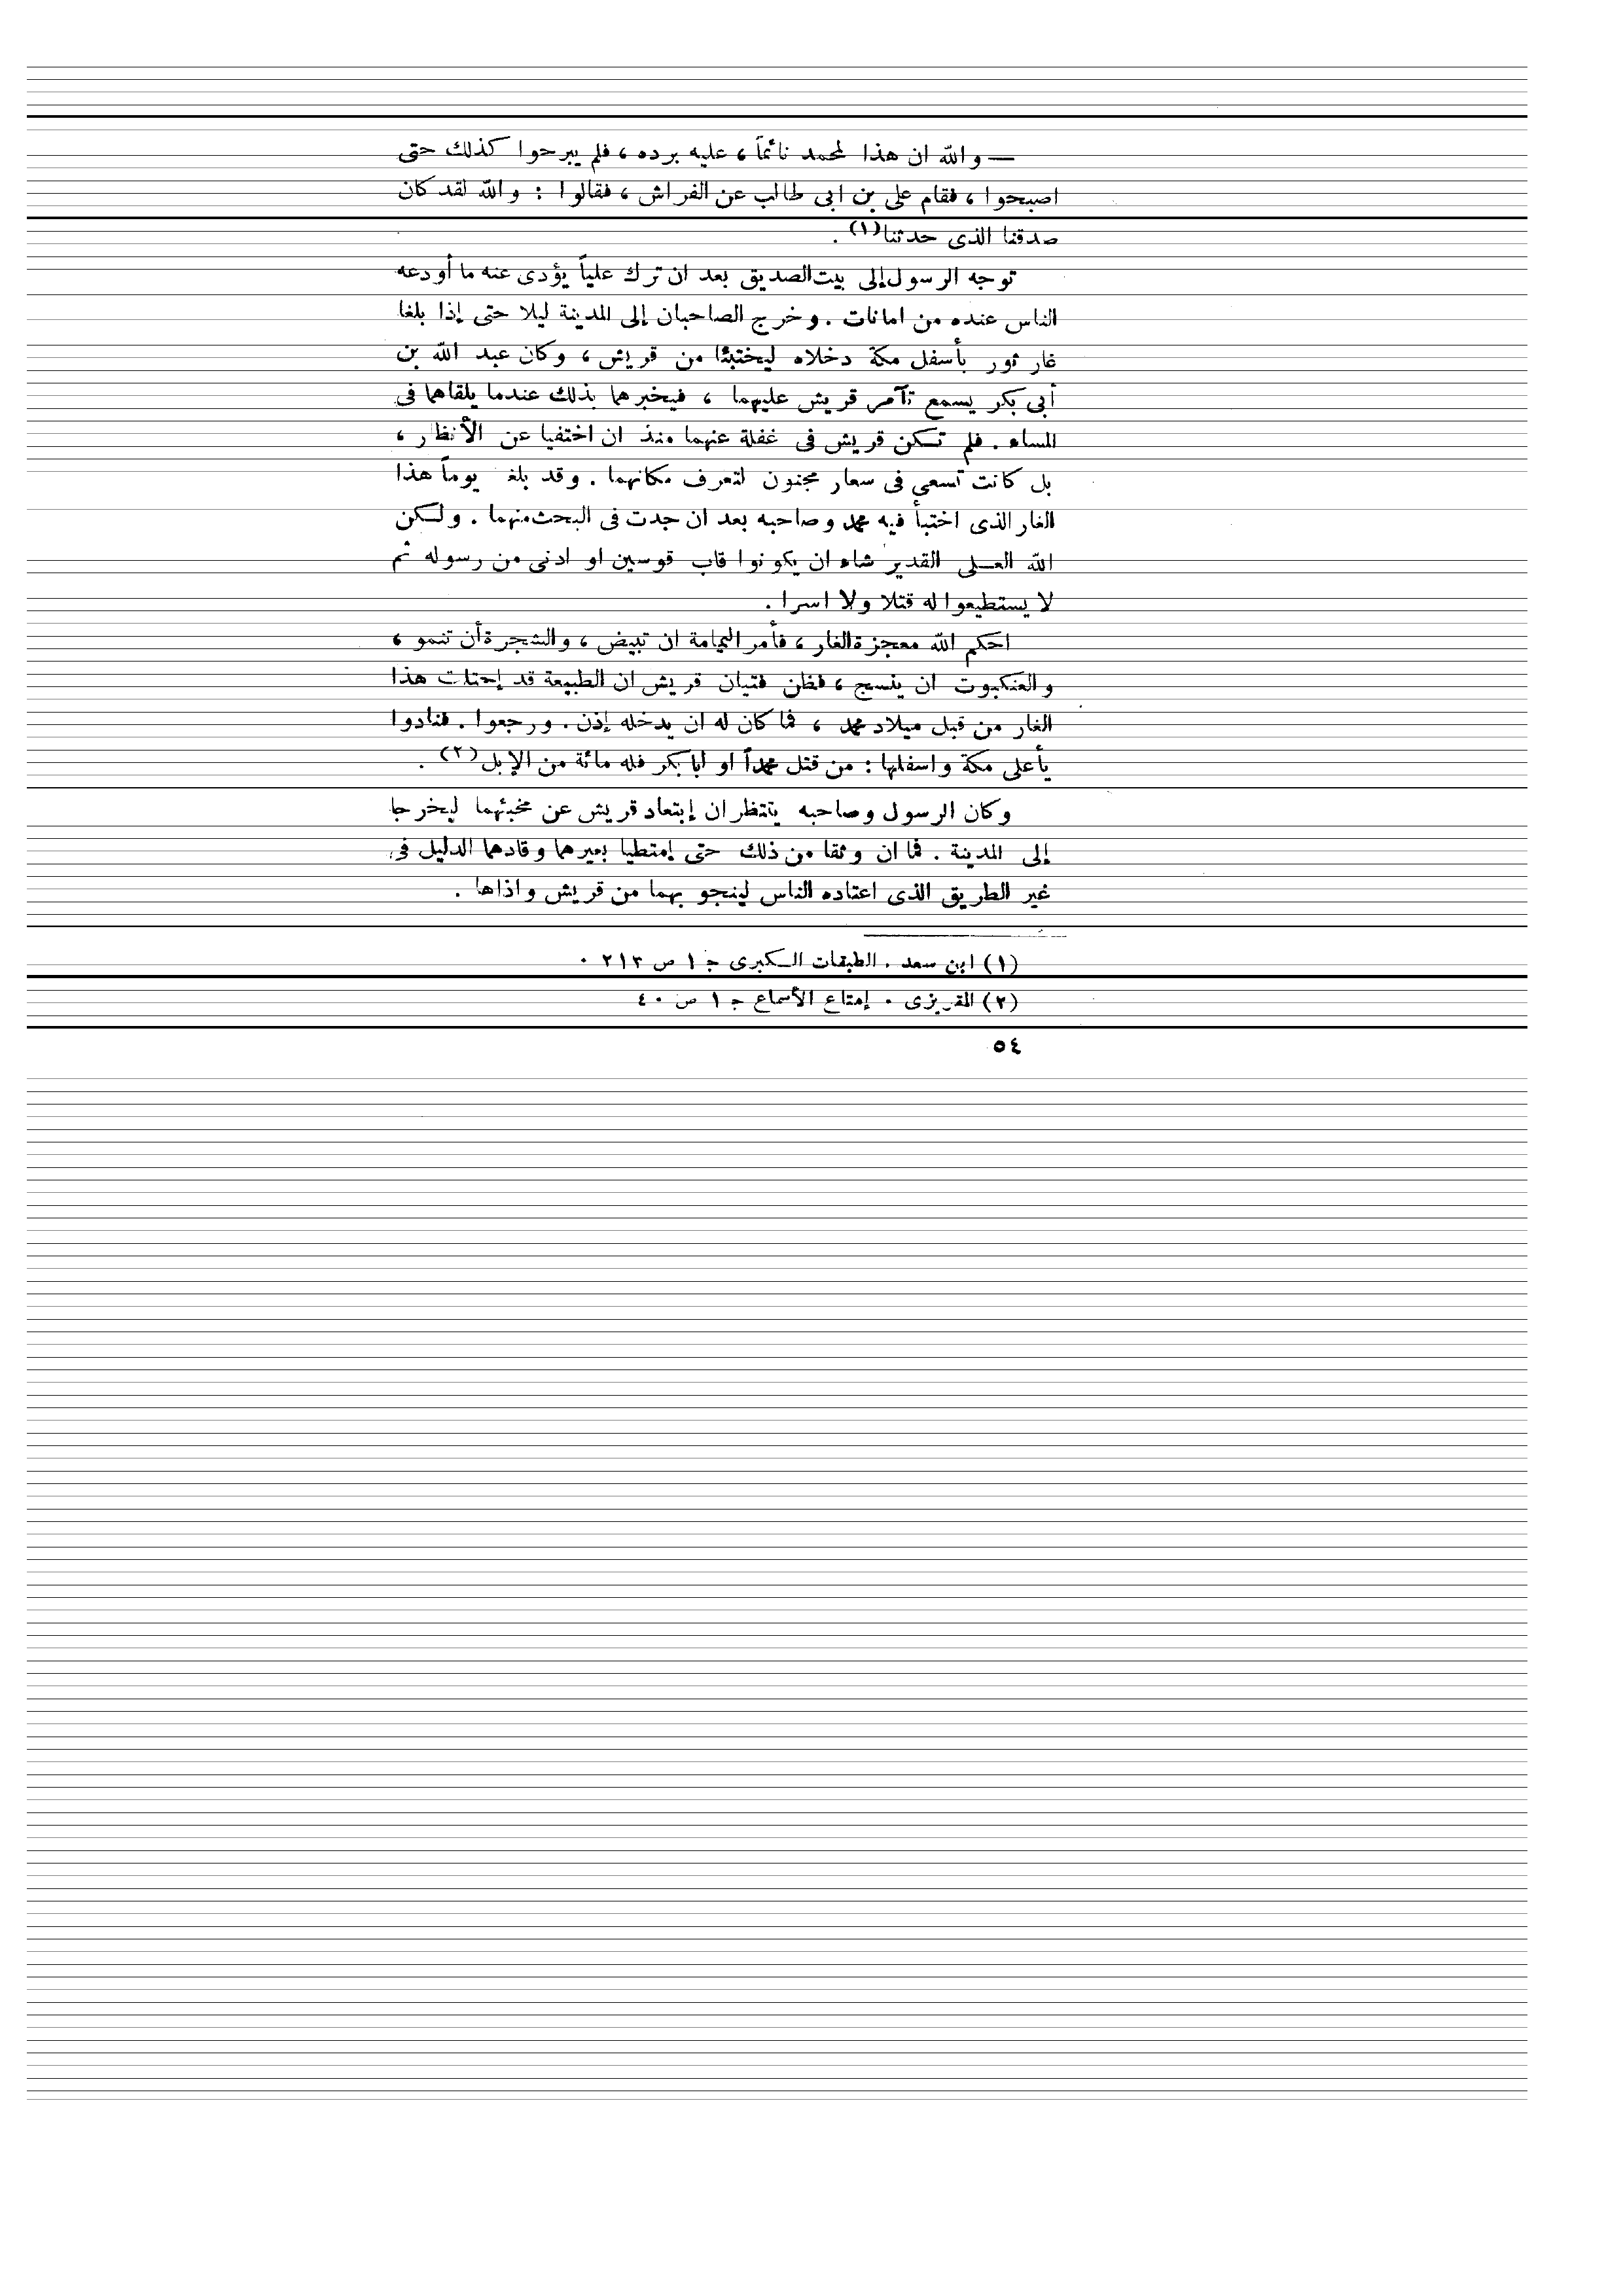 — والله ان هذا لمحمد نائماً ، عليه برده ، فلم يبرحوا كذلك حتى
اصبحوا ، فقام على بن ابى طالب عن الفراش ، فقالوا : والله لقد كان
صدقنا الذى حدثنا(١) .
توجه الرسول إلى بيت الصديق بعد ان ترك علياً يؤدى عنه ما أودعه
الناس عنده من امانات . وخرج الصاحبان إلى المدينة ليلا حتى إذا بلغا
غار ثور بأسفل مكة دخلاه ليختبئا من قريش ، وكان عبد الله بن
أبى بكر يسمع تآمر قريش عليهما ، فيخبرهما بذلك عندما يلقاهما فى
المساء . فلم تكن قريش فى غفلة عنهما منذ ان اختفيا عن الأنظار ،
بل كانت تسعى فى سعار مجنون لتعرف مكانهما . وقد بلغ يوماً هذا
الغار الذى اختبأ فيه محمد وصاحبه بعد ان جدت فى البحث منهما . ولكن
الله العلى القدير شاء ان يكونوا قاب قوسين او ادنى من رسوله ثم
لا يستطيعوا له قتلا ولا اسرا .
احكم الله معجزة الغار ، فأمر اليمامة ان تبيض ، والشجرة أن تنمو ،
والعنكبوت ان ينسج ، فظن فتيان قريش ان الطبيعة قد إحتلت هذا
الغار من قبل ميلاد محمد ، فما كان له ان يدخله إذن . ورجعوا . فنادوا
بأعلى مكة واسفلها : من قتل محمداً او ابا بكر فله مائة من الإبل(٢) .
وكان الرسول وصاحبه ينتظران إبتعاد قريش عن مخبئهما ليخرجا
إلى المدينة . فما ان وثقا من ذلك حتى إمتطيا بعيرهما وقادهما الدليل فى
غير الطريق الذى اعتاده الناس لينجو بهما من قريش واذاها .
(١) ابن سعد . الطبقات الكبرى ج ١ ص ٢١٣ .
(٢) المقريزى . إمتاع الأسماع ج ١ ص ٤٠
٥٤